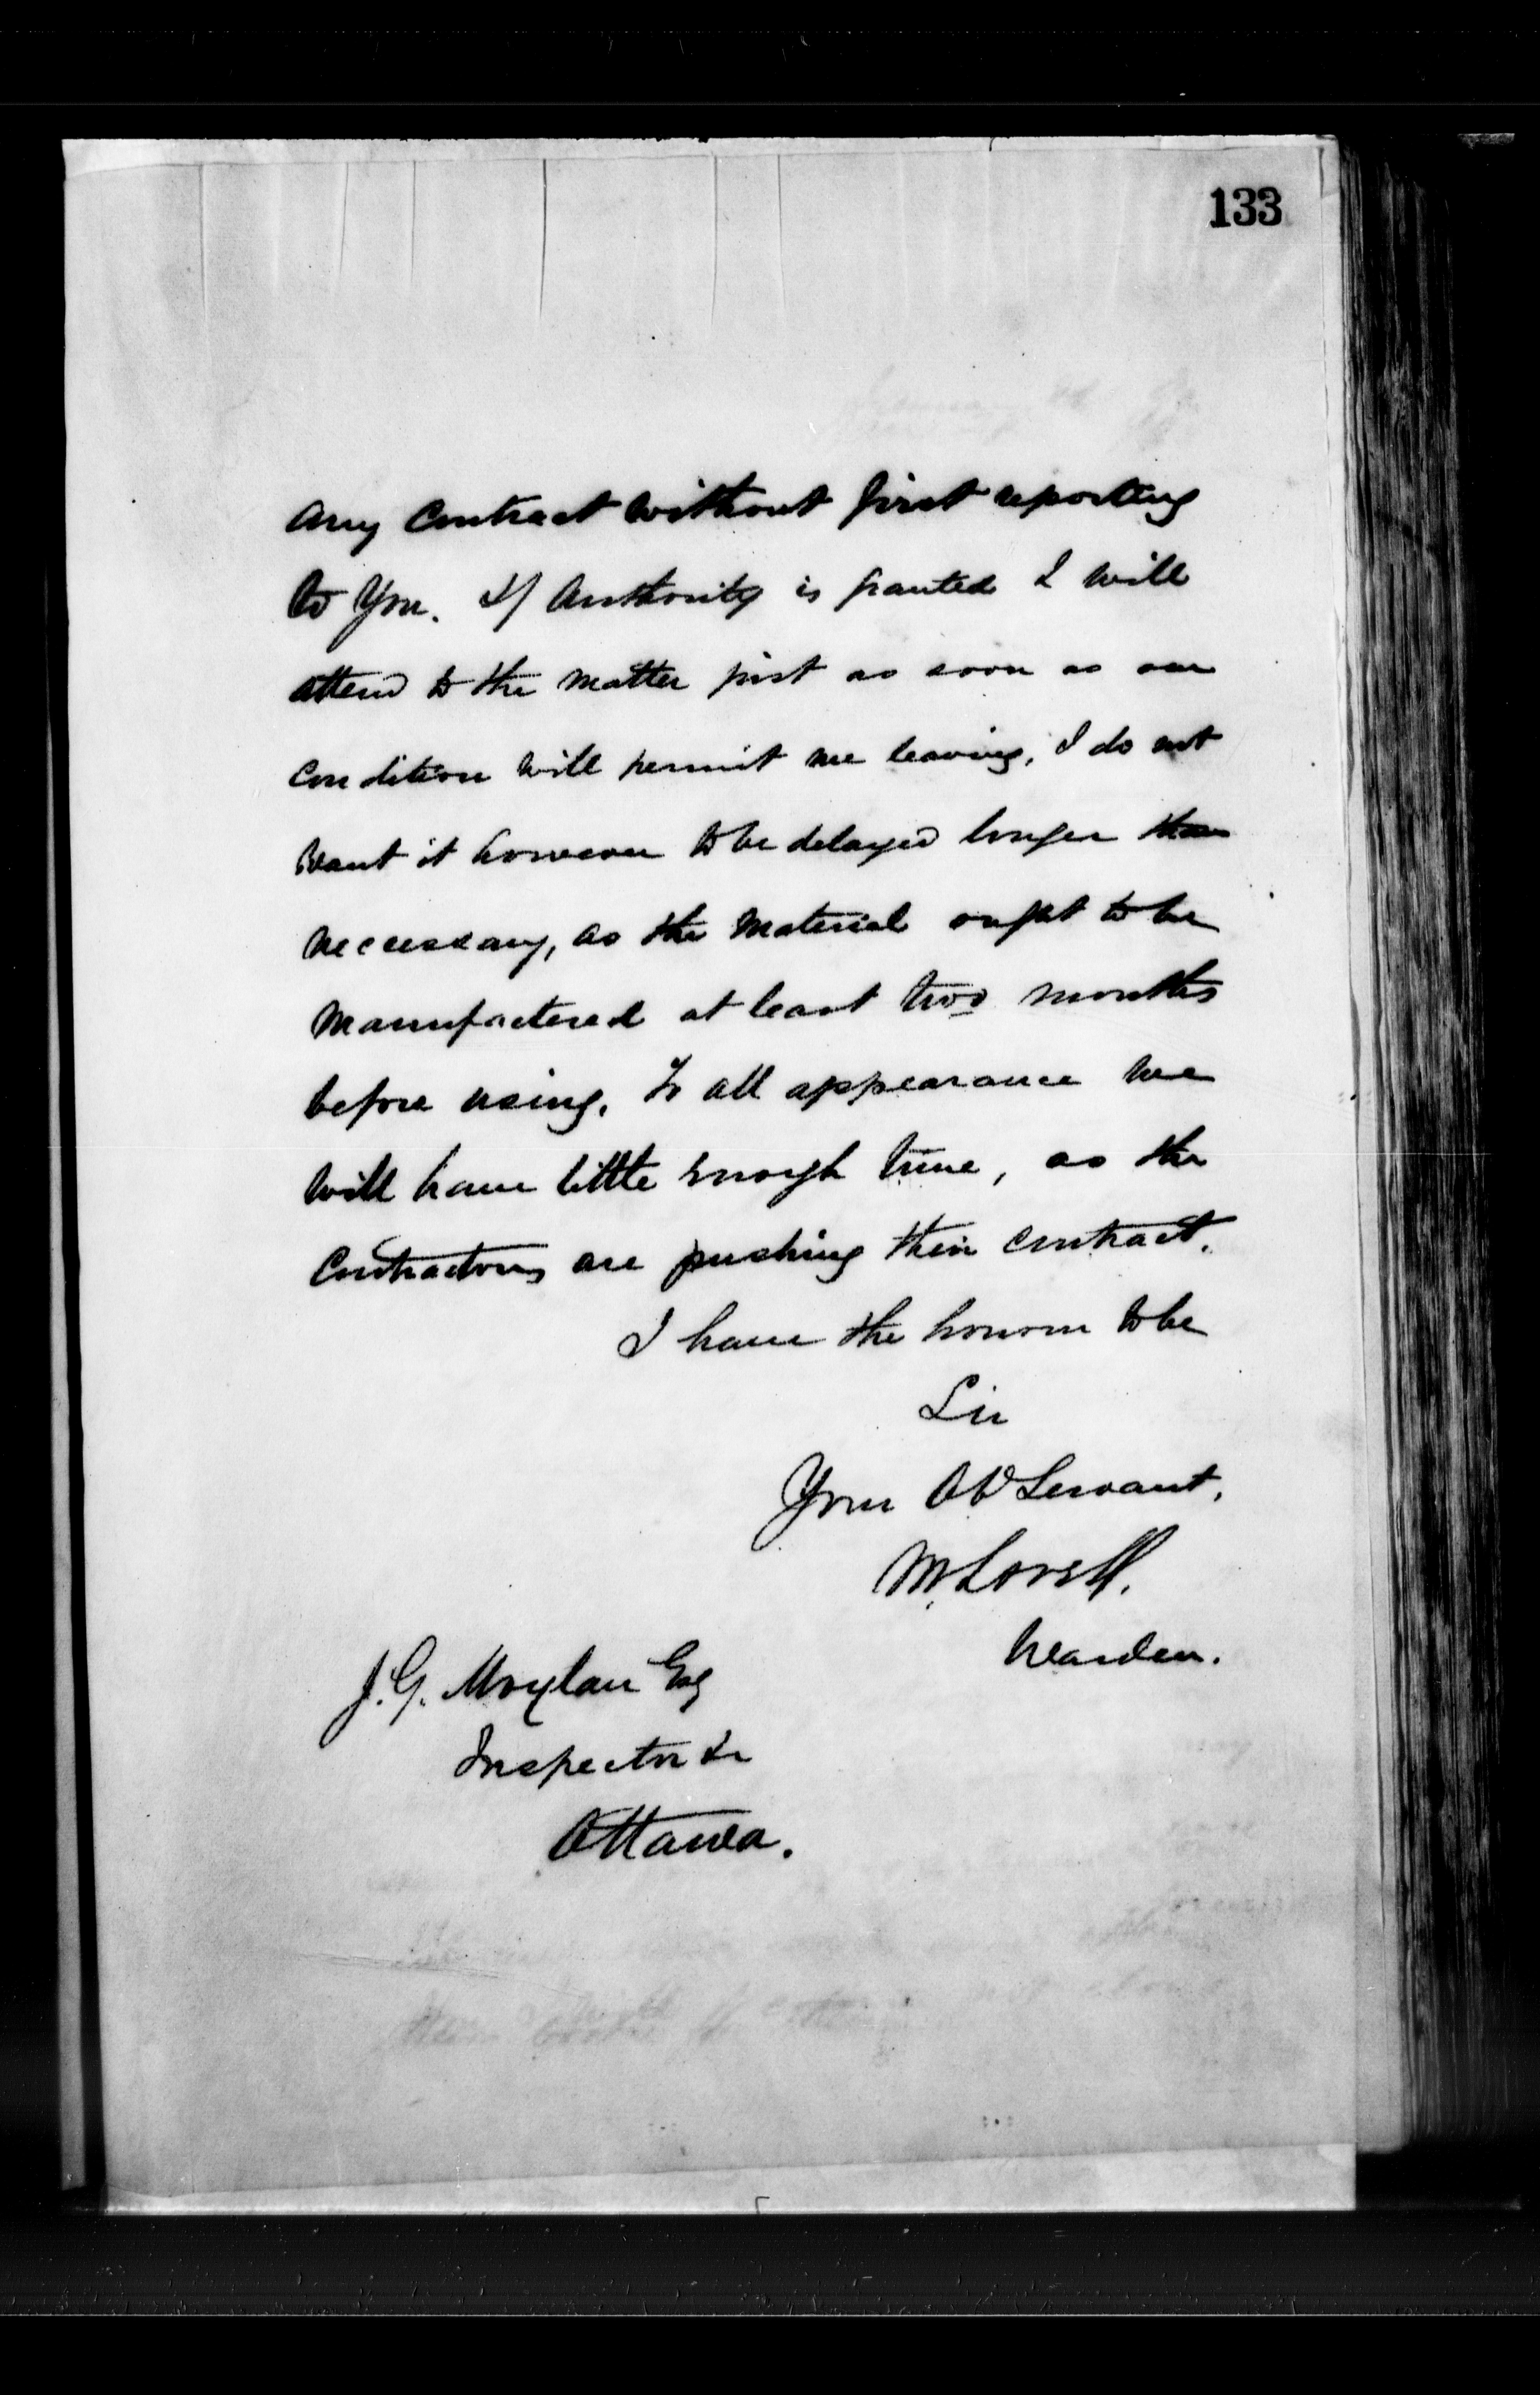 133
any Contract without first reporting
to You. If Authority is granted I will
attend to the matter just as soon as our
condition will permit me leaving, I do not
want it however to be delayed longer than
necessary, as the Material ought to be
Manufactered at least two months
before using. To all appearance we
will have little enough time, as the
Contractors are pushing their contract.
I have the honour to be
Sir
Your Ob Servant,
M. Lovell.
Warden.
J. G. Moylan Esq
Inspector &c
Ottawa.